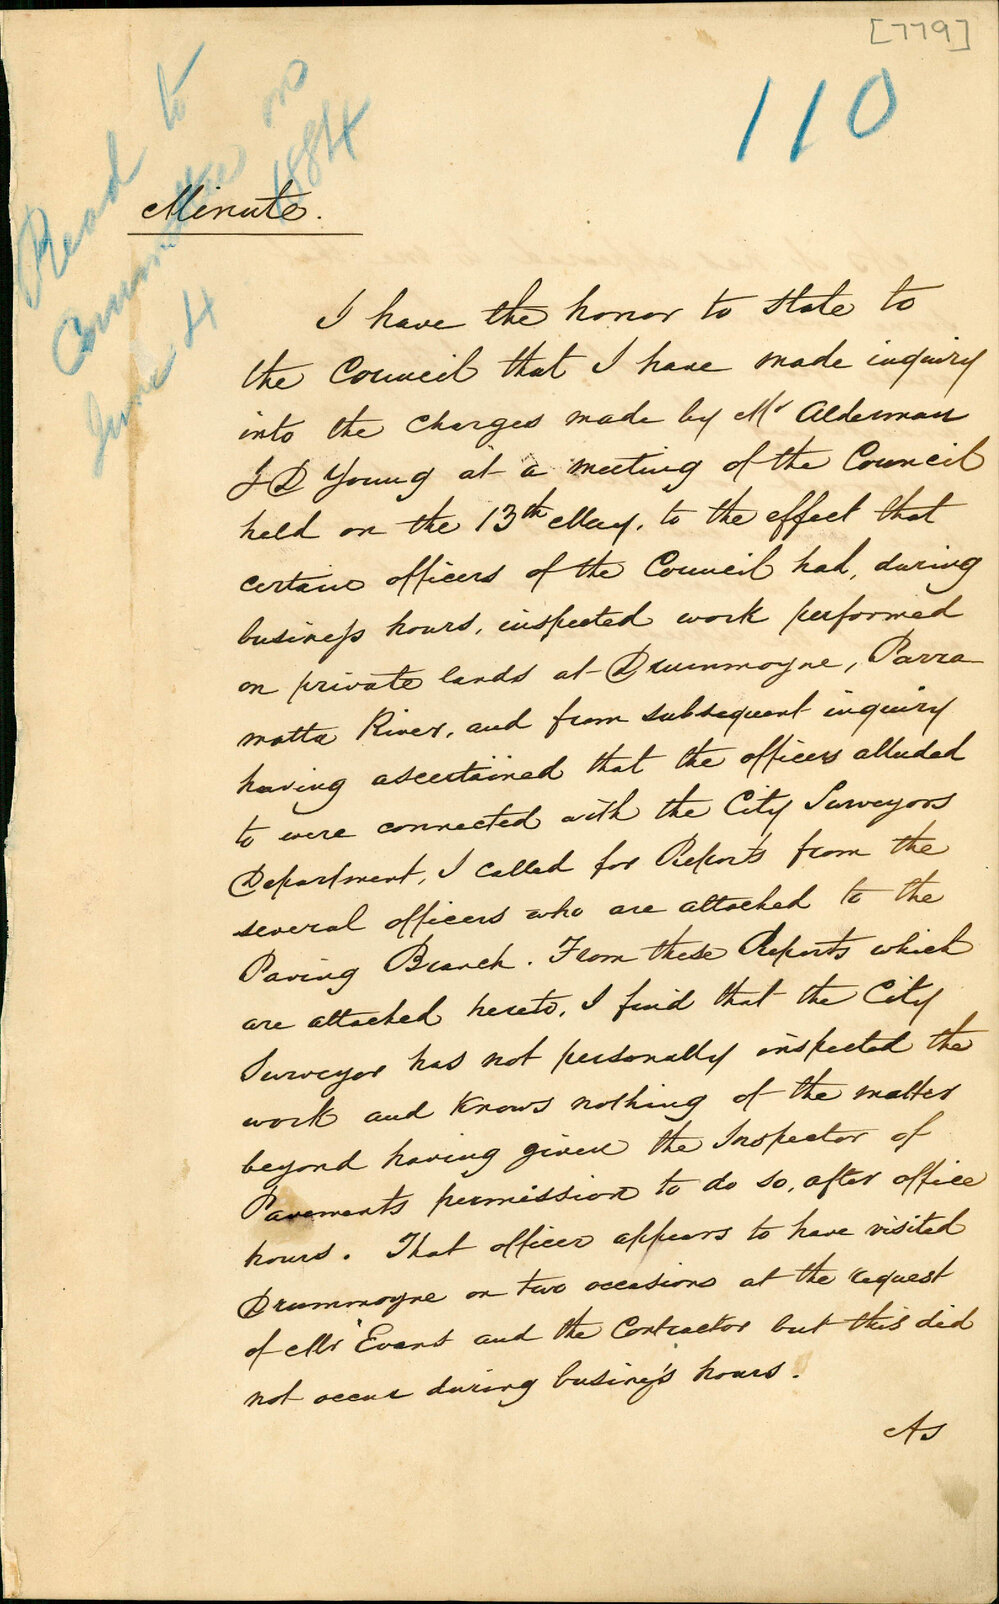 [779]
110
Read to
Committee on
June 4 1884
Minute.
I have the honor to state to
the Council that I have made inquiry
into the charges made by Mr Alderman
J D Young at a meeting of the Council
held on the 13th May, to the effect that
certain officers of the Council had, during
business hours, inspected work performed
on private lands at Drummoyne, Parra
matta River, and from subsequent inquiry
having ascertained that the officers alluded
to were connected with the City Surveyors
Department, I called for Reports from the
several officers who are attached to the
Paving Branch. From these Reports which
are attached hereto, I find that the City
Surveyor has not personally inspected the
work and knows nothing of the matter
beyond having given the Inspector of
Pavements permission to do so, after office
hours. That officer appears to have visited
Drummoyne on two occasions at the request
of Mr Evans and the Contractor but this did
not occur during business hours.
As